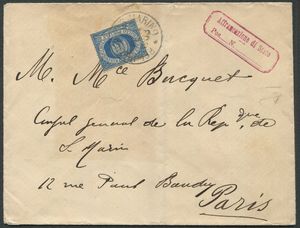 Affrancazione di Stato
Pos. N.
M. Mce Bucquet
Consul general de la Repque de
S. Marin
12 rue Paul Baudry
Paris